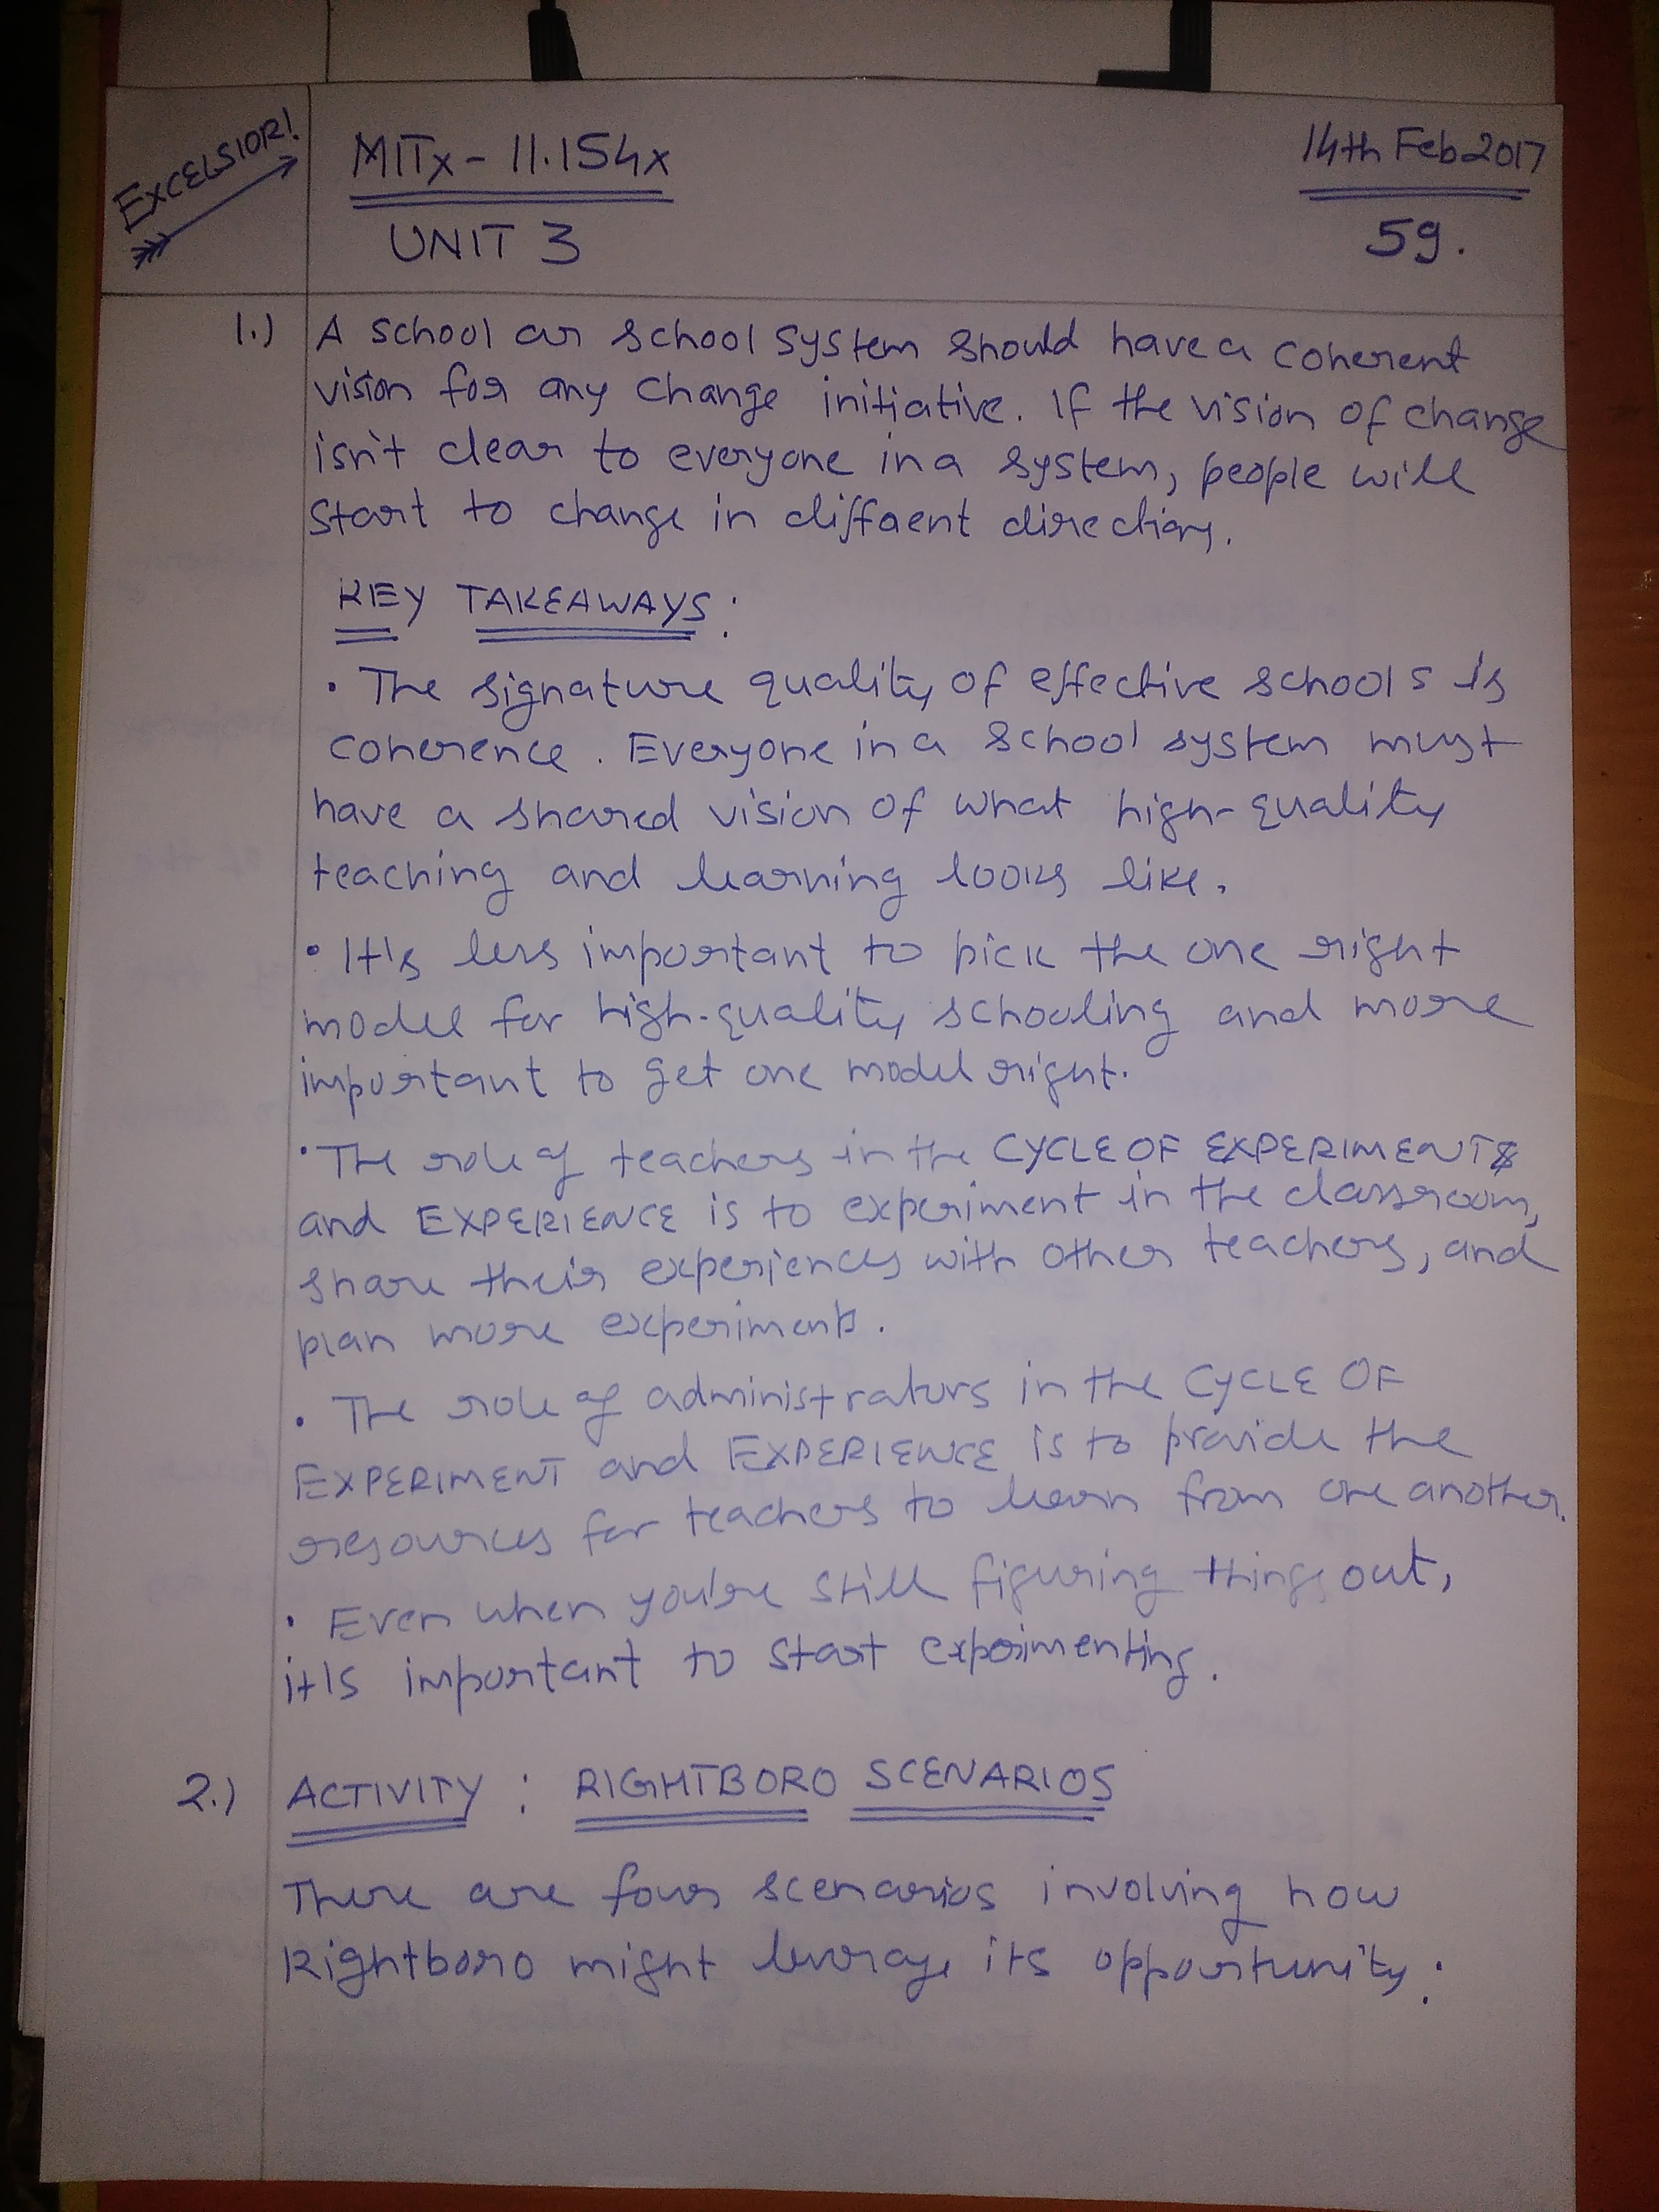 EXCELSIOR!
MITx - 11.154x
UNIT 3
14th Feb 2017
59.
1.) A school or school system should have a coherent
vision for any change initiative. If the vision of change
isn't clear to everyone in a system, people will
start to change in diffaent directions.
KEY TAKEAWAYS:
• The signature quality of effective schools is
coherence. Everyone in a school system must
have a shared vision of what high-quality
teaching and learning looks like.
• It's less important to pick the one right
model for high-quality schooling and more
important to get one model right.
• The role of teachers in the CYCLE OF EXPERIMENT
and EXPERIENCE is to experiment in the classroom,
share their experiences with other teachers, and
plan more experiments.
• The role of administrators in the CYCLE OF
EXPERIMENT and EXPERIENCE is to provide the
resources for teachers to learn from one another.
• Even when you're still figuring things out,
it's important to start experimenting.
2.) ACTIVITY : RIGHTBORO SCENARIOS
There are four scenarios involving how
Rightboro might leverage its opportunity: